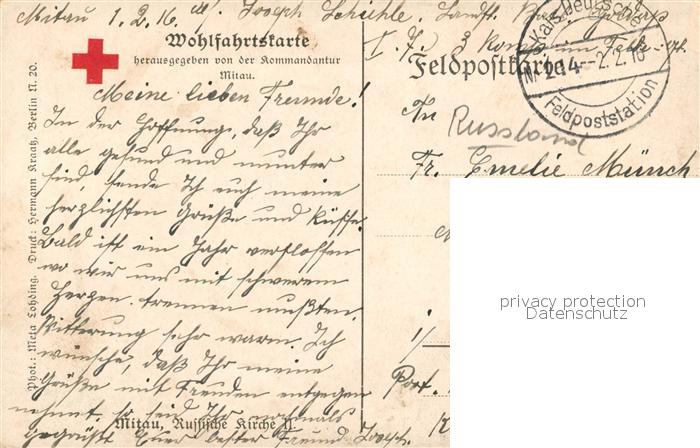 Mitau 1.2.16. Abs. Joseph Schiehle, Landst.
I. 3 Komp.
Wohlfahrtskarte
herausgegeben von der Kommandantur
Mitau.
Feldpostkarte
Kais. Deutsche
Nr 214 -- 2.2.16
Feldpoststation
Meine lieben Freunde!
In der Hoffnung, daß Ihr
alle gesund und munter
sind, sende Ich euch meine
herzlichsten Grüße und Küsse.
Bald ist ein Jahr verflossen
wo wir uns mit schwerem
Herzen trennen mußten.
Witterung sehr warm. Ich
wünsche, daß Ihr meine
Grüße mit Freuden entgegen
nehmt. so seid Ihr nochmals
gegrüßt Euer bester Freund Joseph.
Mitau, Russische Kirche II.
Phot.: Meta Lohding. Druck: Hermann Kraatz, Berlin N. 20.
An
Russland
Fr. Emelie Münch
M
1/
Post.
privacy protection
Datenschutz